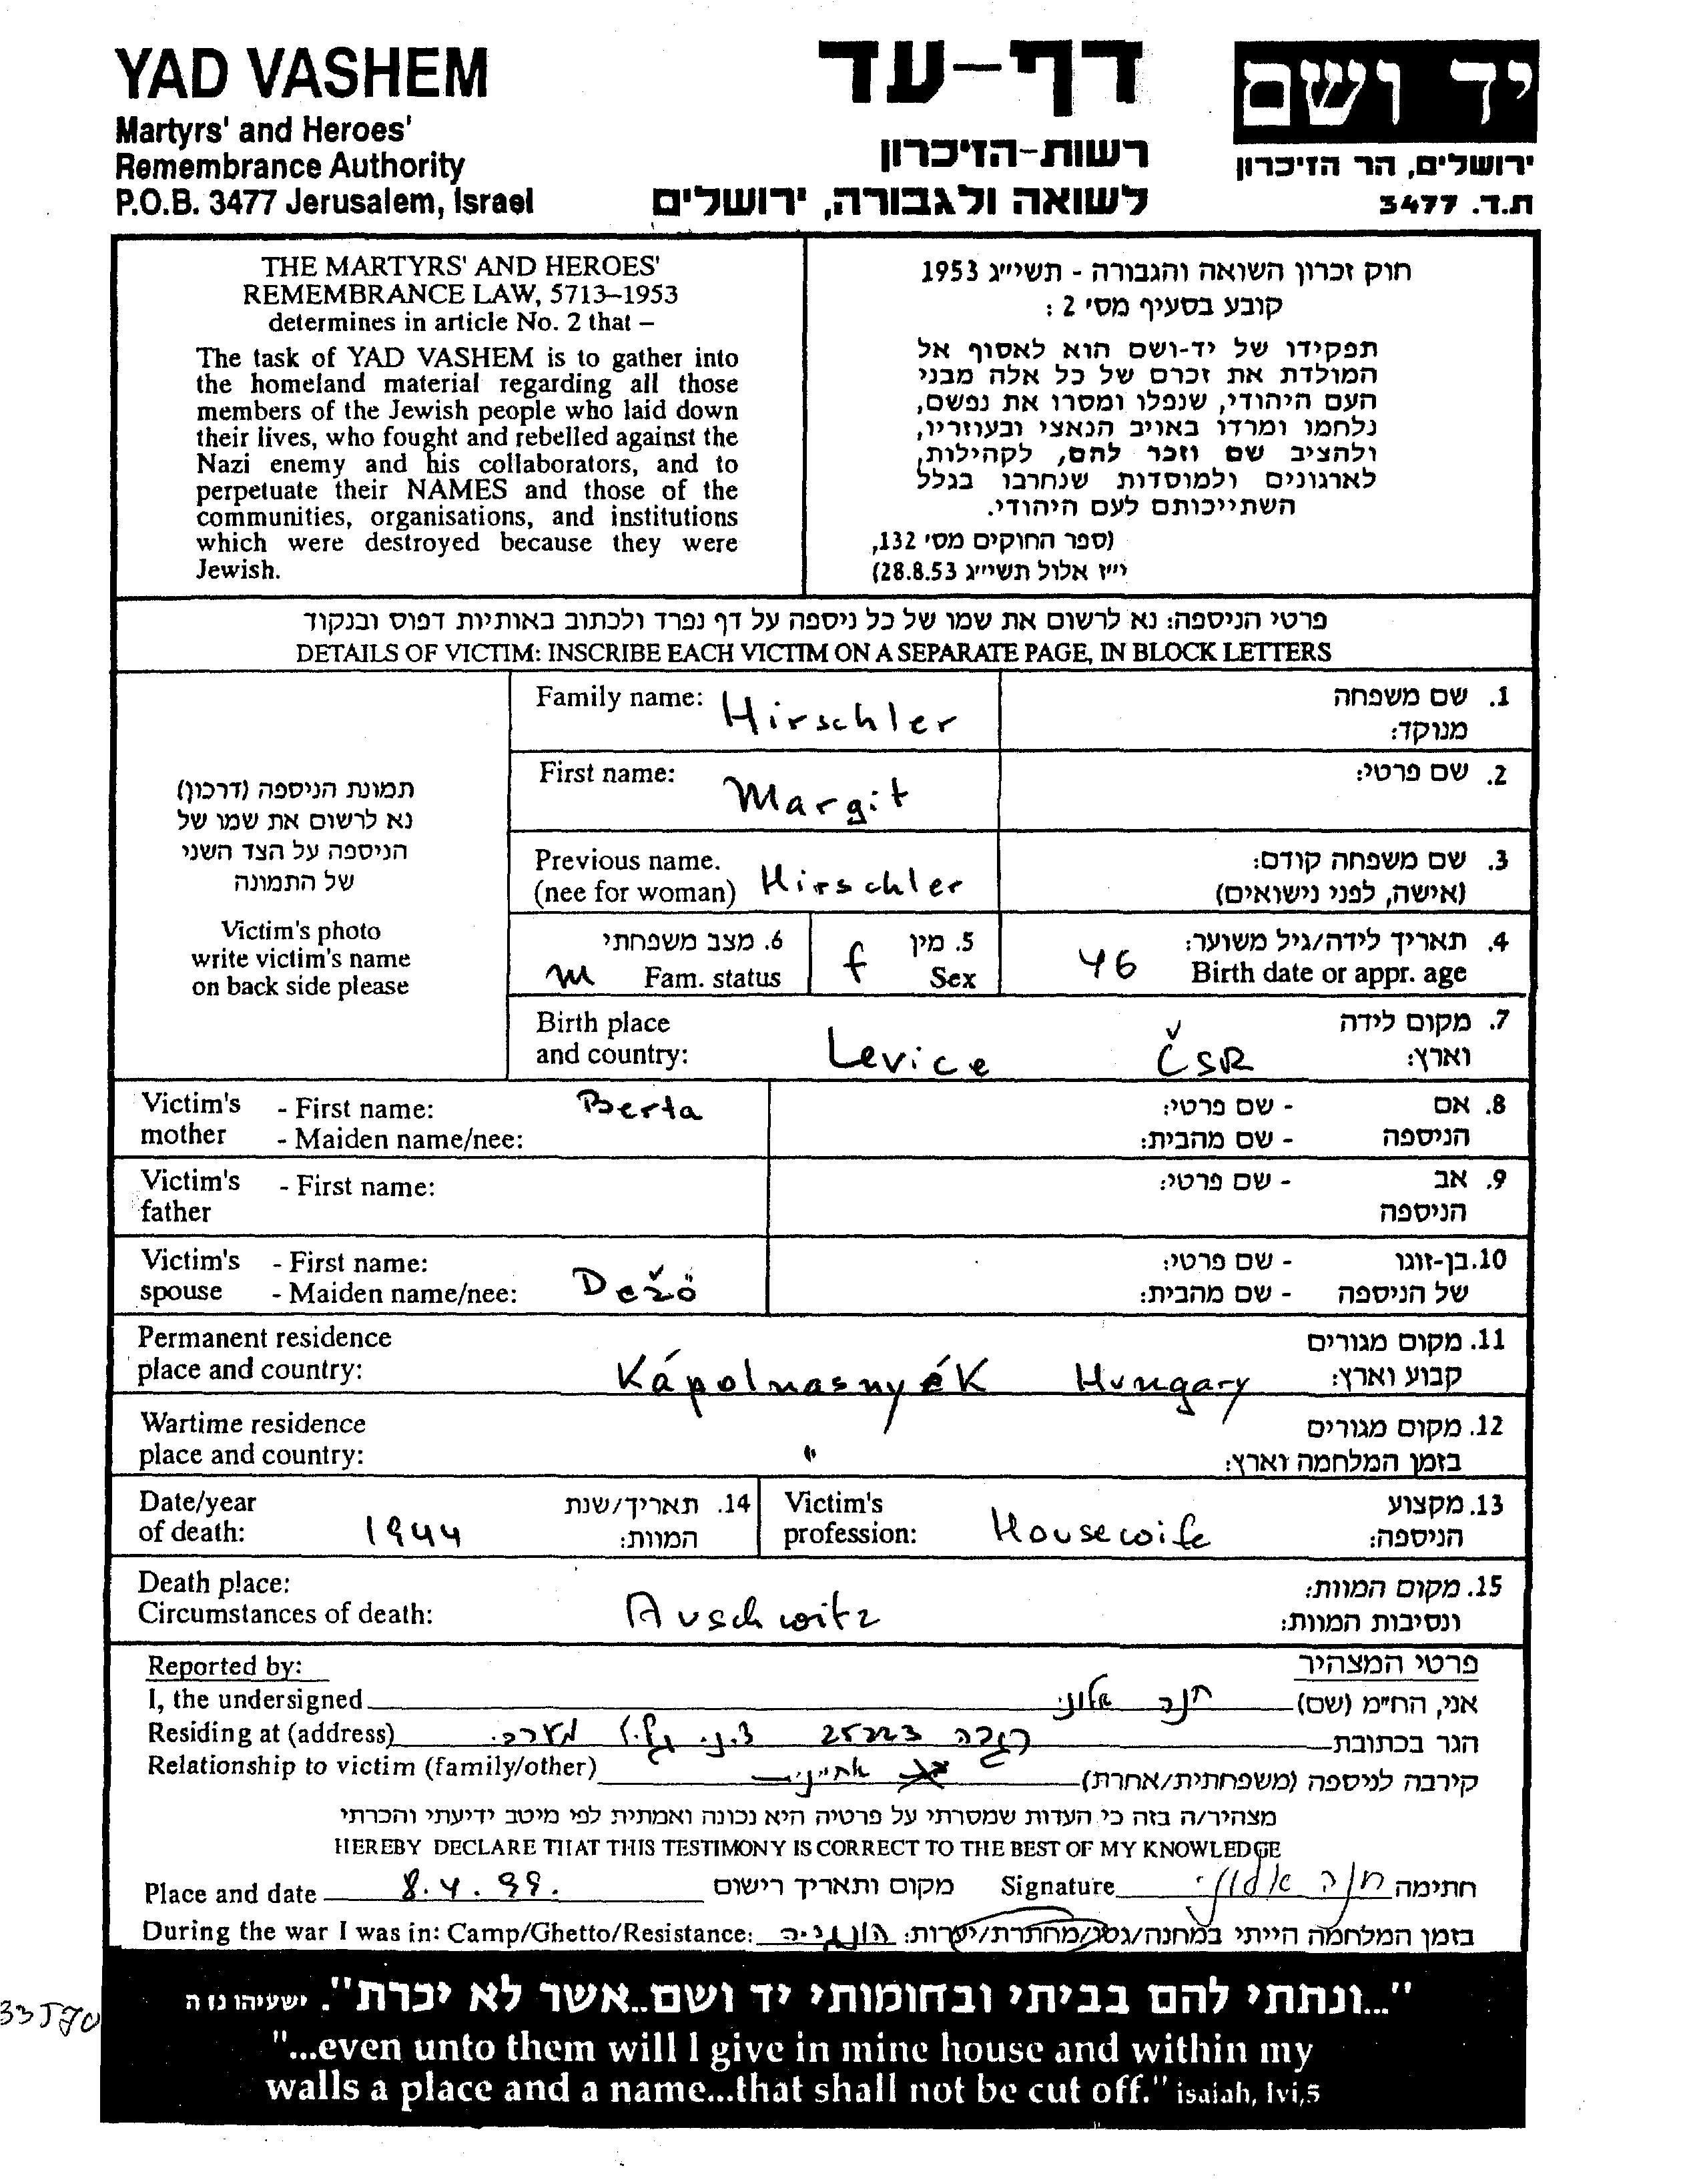 YAD VASHEM
Martyrs' and Heroes'
Remembrance Authority
P.O.B. 3477 Jerusalem, Israel
דף-עד
רשות-הזיכרון
לשואה ולגבורה, ירושלים
יד ושם
ירושלים, הר הזיכרון
ת.ד. 3477
THE MARTYRS' AND HEROES'
REMEMBRANCE LAW, 5713–1953
determines in article No. 2 that –
The task of YAD VASHEM is to gather into
the homeland material regarding all those
members of the Jewish people who laid down
their lives, who fought and rebelled against the
Nazi enemy and his collaborators, and to
perpetuate their NAMES and those of the
communities, organisations, and institutions
which were destroyed because they were
Jewish.
חוק זכרון השואה והגבורה - תשי״ג 1953
קובע בסעיף מס׳ 2 :
תפקידו של יד-ושם הוא לאסוף אל
המולדת את זכרם של כל אלה מבני
העם היהודי, שנפלו ומסרו את נפשם,
נלחמו ומרדו באויב הנאצי ובעוזריו,
ולהציב שם וזכר להם, לקהילות,
לארגונים ולמוסדות שנחרבו בגלל
השתייכותם לעם היהודי.
(ספר החוקים מס׳ 132,
י״ז אלול תשי״ג 28.8.53)
פרטי הניספה: נא לרשום את שמו של כל ניספה על דף נפרד ולכתוב באותיות דפוס ובנקוד
DETAILS OF VICTIM: INSCRIBE EACH VICTIM ON A SEPARATE PAGE, IN BLOCK LETTERS
תמונת הניספה (דרכון)
נא לרשום את שמו של
הניספה על הצד השני
של התמונה
Victim's photo
write victim's name
on back side please
Family name: Hirschler 1. שם משפחה
מנוקד:
First name: Margit 2. שם פרטי:
Previous name. 3. שם משפחה קודם:
(nee for woman) Hirschler (אישה, לפני נישואים)
6. מצב משפחתי 5. מין 4. תאריך לידה/גיל משוער:
m Fam. status f Sex 46 Birth date or appr. age
Birth place 7. מקום לידה
and country: Levice ČSR וארץ:
Victim's - First name: Berta - שם פרטי: 8. אם
mother - Maiden name/nee: - שם מהבית: הניספה
Victim's - First name: - שם פרטי: 9. אב
father הניספה
Victim's - First name: - שם פרטי: 10. בן-זוגו
spouse - Maiden name/nee: Dežö - שם מהבית: של הניספה
Permanent residence 11. מקום מגורים
place and country: Kápolnasnyék Hungary קבוע וארץ:
Wartime residence 12. מקום מגורים
place and country: " בזמן המלחמה וארץ:
Date/year 14. תאריך/שנת Victim's 13. מקצוע
of death: 1944 המוות: profession: Housewife הניספה:
Death place: 15. מקום המוות:
Circumstances of death: Auschwitz ונסיבות המוות:
Reported by: פרטי המצהיר
I, the undersigned חנה אלוני אני, הח״מ (שם)
Residing at (address) 25223 הגר בכתובת
Relationship to victim (family/other) אחיינית קירבה לניספה (משפחתית/אחרת)
מצהיר/ה בזה כי העדות שמסרתי על פרטיה היא נכונה ואמתית לפי מיטב ידיעתי והכרתי
HEREBY DECLARE THAT THIS TESTIMONY IS CORRECT TO THE BEST OF MY KNOWLEDGE
Place and date 8.4.99. מקום ותאריך רישום Signature חנה אלוני חתימה
During the war I was in: Camp/Ghetto/Resistance: הונגריה בזמן המלחמה הייתי במחנה/גטו/מחתרת/יערות:
"...ונתתי להם בביתי ובחומותי יד ושם..אשר לא יכרת". ישעיהו נו ה
"...even unto them will I give in mine house and within my
walls a place and a name...that shall not be cut off." isaiah, lvi,5